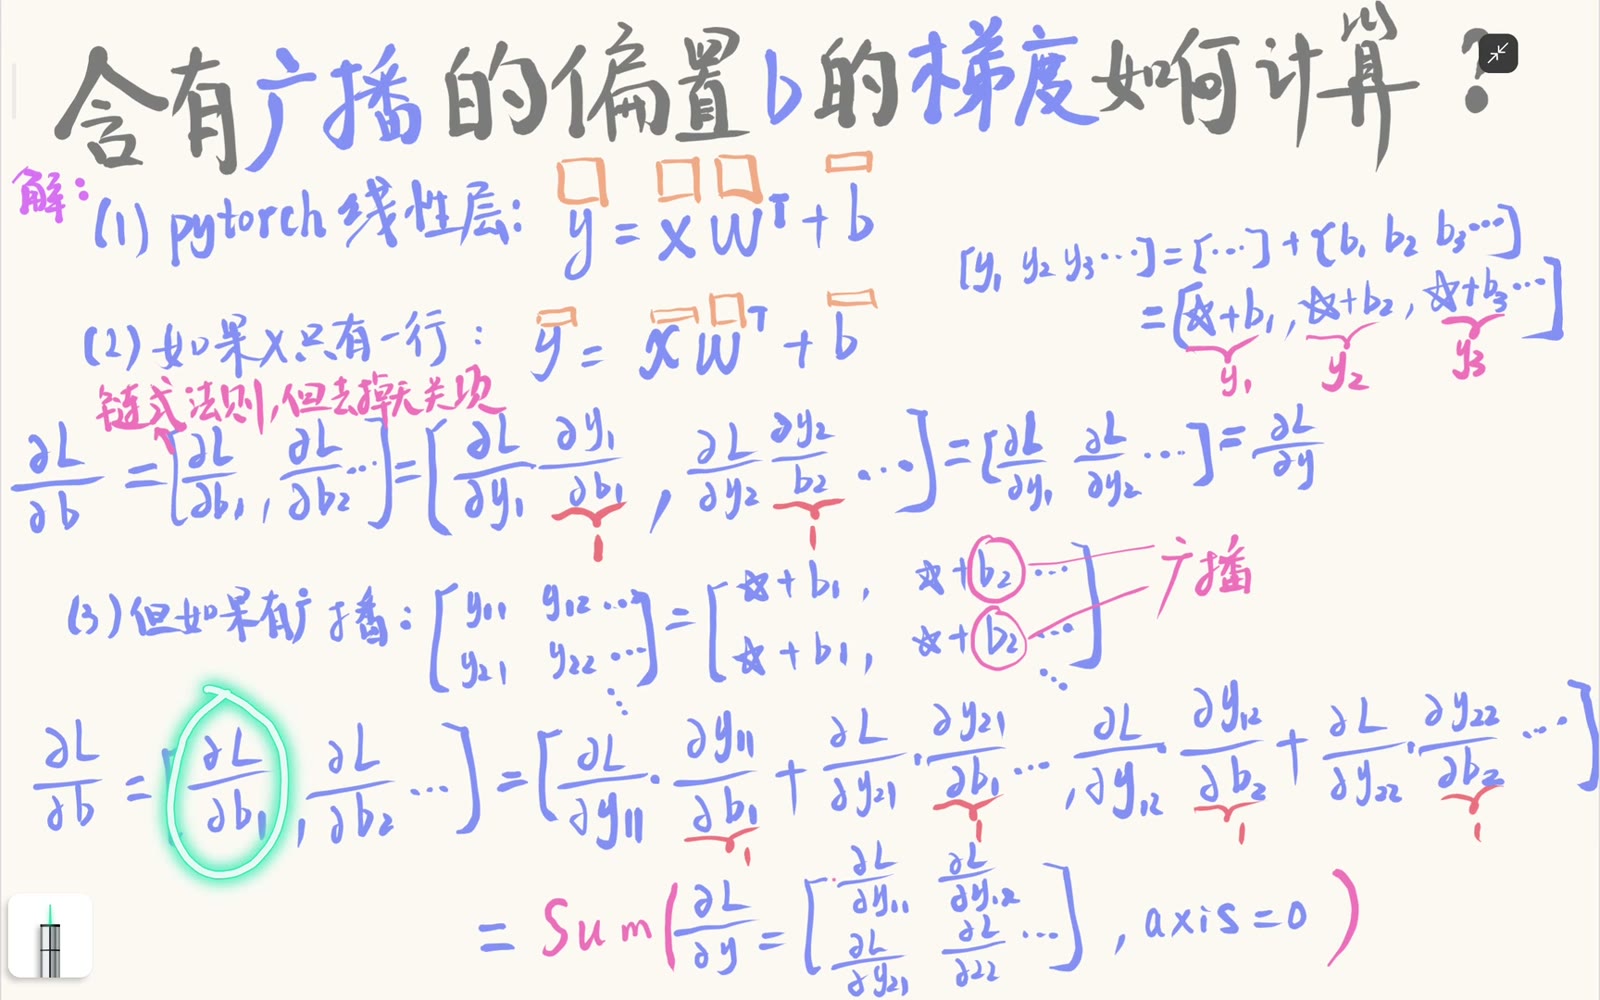 含有广播的偏置b的梯度如何计算?
解:
(1) pytorch 线性层: y = x W^T + b
[y₁ y₂ y₃ ⋯] = [⋯] + [b₁ b₂ b₃ ⋯]
= [☆+b₁, ☆+b₂, ☆+b₃ ⋯]
y₁ y₂ y₃
(2) 如果x只有一行: y = x W^T + b
链式法则,但去掉无关项
∂L/∂b = [∂L/∂b₁, ∂L/∂b₂ ⋯] = [∂L/∂y₁ ∂y₁/∂b₁, ∂L/∂y₂ ∂y₂/b₂ ⋯] = [∂L/∂y₁ ∂L/∂y₂ ⋯] = ∂L/∂y
1 1
(3) 但如果有广播: [y₁₁ y₁₂ ⋯ y₂₁ y₂₂ ⋯ ⋱] = [☆+b₁, ☆+b₂ ⋯ ☆+b₁, ☆+b₂ ⋯ ⋱] 广播
∂L/∂b = [∂L/∂b₁, ∂L/∂b₂ ⋯] = [∂L/∂y₁₁ · ∂y₁₁/∂b₁ + ∂L/∂y₂₁ · ∂y₂₁/∂b₁ ⋯, ∂L/∂y₁₂ · ∂y₁₂/∂b₂ + ∂L/∂y₂₂ · ∂y₂₂/∂b₂ ⋯]
1 1 1 1
= Sum(∂L/∂y = [∂L/∂y₁₁ ∂L/∂y₁₂ ∂L/∂y₂₁ ∂L/∂22 ⋯], axis=0)